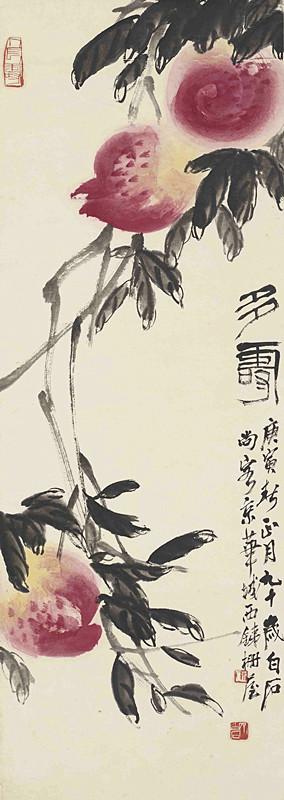 多壽
庚寅秋正月九十歲白石
尚客京華城西鐵柵屋